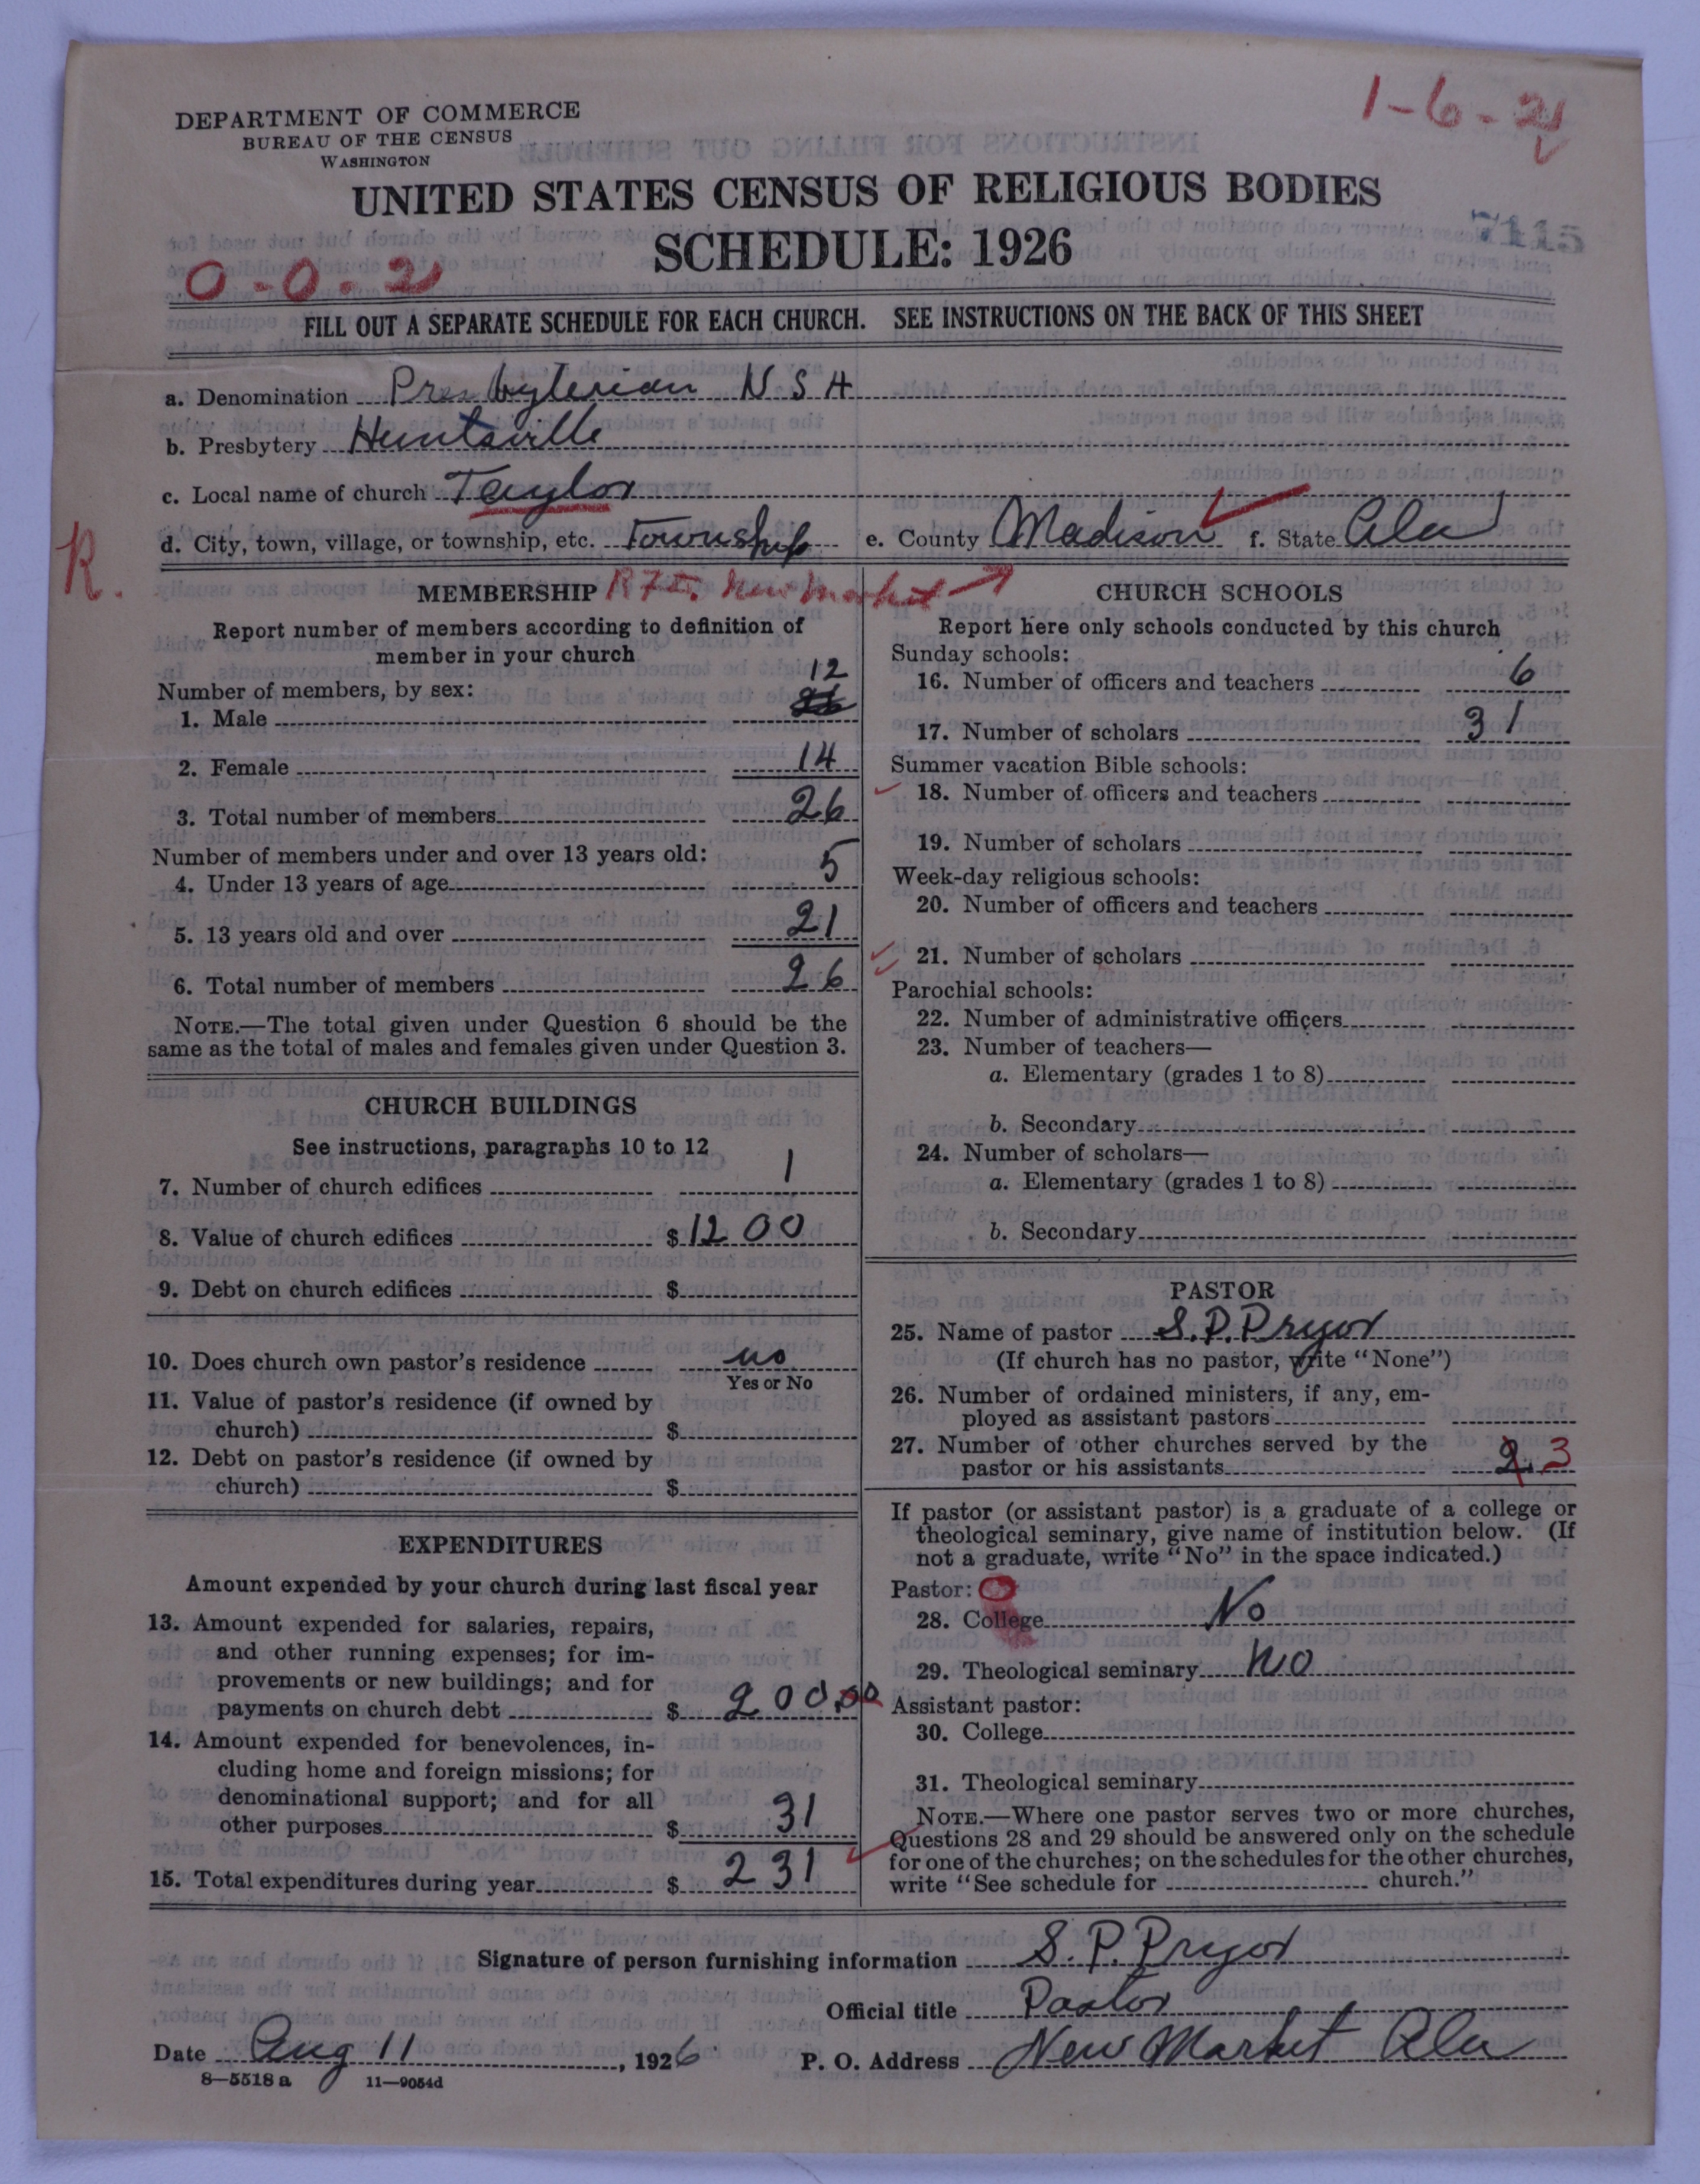 1-6-2
DEPARTMENT OF COMMERCE
BUREAU OF THE CENSUS
WASHINGTON
UNITED STATES CENSUS OF RELIGIOUS BODIES
SCHEDULE: 1926
7115
0-0-2
FILL OUT A SEPARATE SCHEDULE FOR EACH CHURCH. SEE INSTRUCTIONS ON THE BACK OF THIS SHEET
a. Denomination Presbyterian U S A
b. Presbytery Huntsville
c. Local name of church Taylor
d. City, town, village, or township, etc. Township e. County Madison f. State Ala
R.
MEMBERSHIP
New Market
Report number of members according to definition of
member in your church
Number of members, by sex:
1. Male 12
2. Female 14
3. Total number of members 26
Number of members under and over 13 years old:
4. Under 13 years of age 5
5. 13 years old and over 21
6. Total number of members 26
NOTE.—The total given under Question 6 should be the
same as the total of males and females given under Question 3.
CHURCH BUILDINGS
See instructions, paragraphs 10 to 12
7. Number of church edifices 1
8. Value of church edifices $ 1200
9. Debt on church edifices $
10. Does church own pastor's residence no
Yes or No
11. Value of pastor's residence (if owned by
church) $
12. Debt on pastor's residence (if owned by
church) $
EXPENDITURES
Amount expended by your church during last fiscal year
13. Amount expended for salaries, repairs,
and other running expenses; for im-
provements or new buildings; and for
payments on church debt $ 200.00
14. Amount expended for benevolences, in-
cluding home and foreign missions; for
denominational support; and for all
other purposes $ 31
15. Total expenditures during year $ 231
CHURCH SCHOOLS
Report here only schools conducted by this church
Sunday schools:
16. Number of officers and teachers 6
17. Number of scholars 31
Summer vacation Bible schools:
18. Number of officers and teachers
19. Number of scholars
Week-day religious schools:
20. Number of officers and teachers
21. Number of scholars
Parochial schools:
22. Number of administrative officers
23. Number of teachers—
a. Elementary (grades 1 to 8)
b. Secondary
24. Number of scholars—
a. Elementary (grades 1 to 8)
b. Secondary
PASTOR
25. Name of pastor S. P. Pryor
(If church has no pastor, write "None")
26. Number of ordained ministers, if any, em-
ployed as assistant pastors
27. Number of other churches served by the
pastor or his assistants 2 3
If pastor (or assistant pastor) is a graduate of a college or
theological seminary, give name of institution below. (If
not a graduate, write "No" in the space indicated.)
Pastor: 0
28. College No
29. Theological seminary No
Assistant pastor:
30. College
31. Theological seminary
NOTE.—Where one pastor serves two or more churches,
Questions 28 and 29 should be answered only on the schedule
for one of the churches; on the schedules for the other churches,
write "See schedule for church."
Signature of person furnishing information S. P. Pryor
Official title Pastor
Date Aug 11, 1926 P. O. Address New Market Ala
8—5518 a 11—9054d